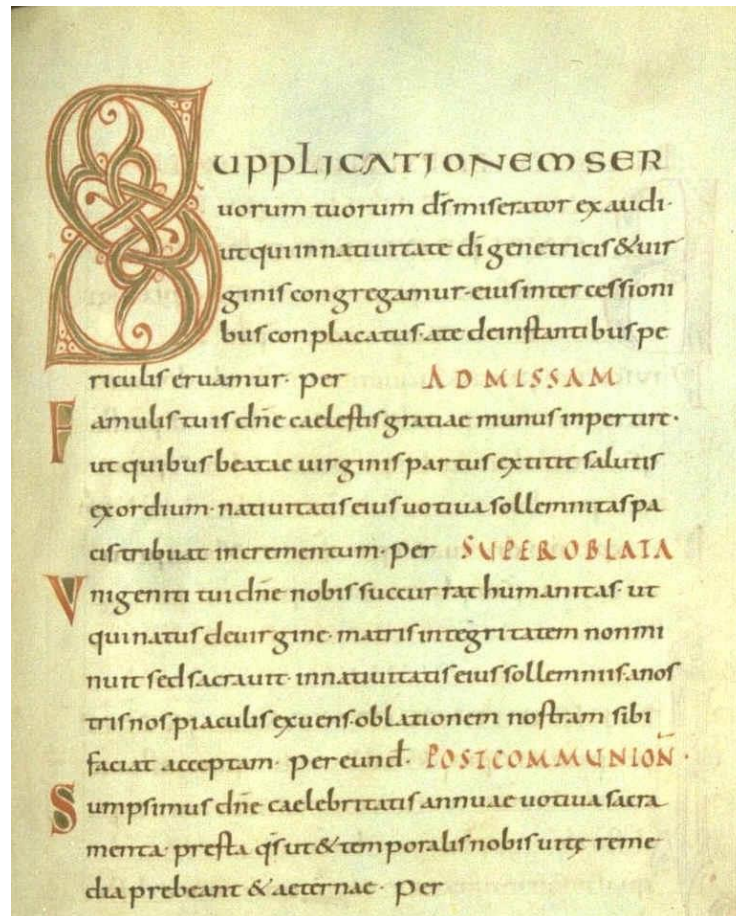 SUPPLICATIONEM SER
uorum tuorum d̄s miserator exaudi·
ut qui in natiuitate dī genetricis & uir
ginis congregamur· eius intercessioni
bus conplacatus· a te de instantibus pe
riculis eruamur· per AD MISSAM
Famulis tuis dn̄e caelestis gratiae munus inpertire·
ut quibus beatae uirginis partus extitit salutis
exordium· natiuitatis eius uotiua sollemnitas pa
cis tribuat incrementum· per SUPER OBLATA
Vnigeniti tui dn̄e nobis succurrat humanitas· ut
qui natus de uirgine· matris integritatem non mi
nuit sed sacrauit· in natiuitatis eius sollemniis· a nos
tris nos piaculis exuens· oblationem nostram sibi
faciat acceptam· per eund̄· POST COMMUNION̄·
Sumpsimus dn̄e caelebritatis annuae uotiua sacra
menta· presta q̄s ut & temporalis nobis uitę reme
dia prebeant & aeternae· per